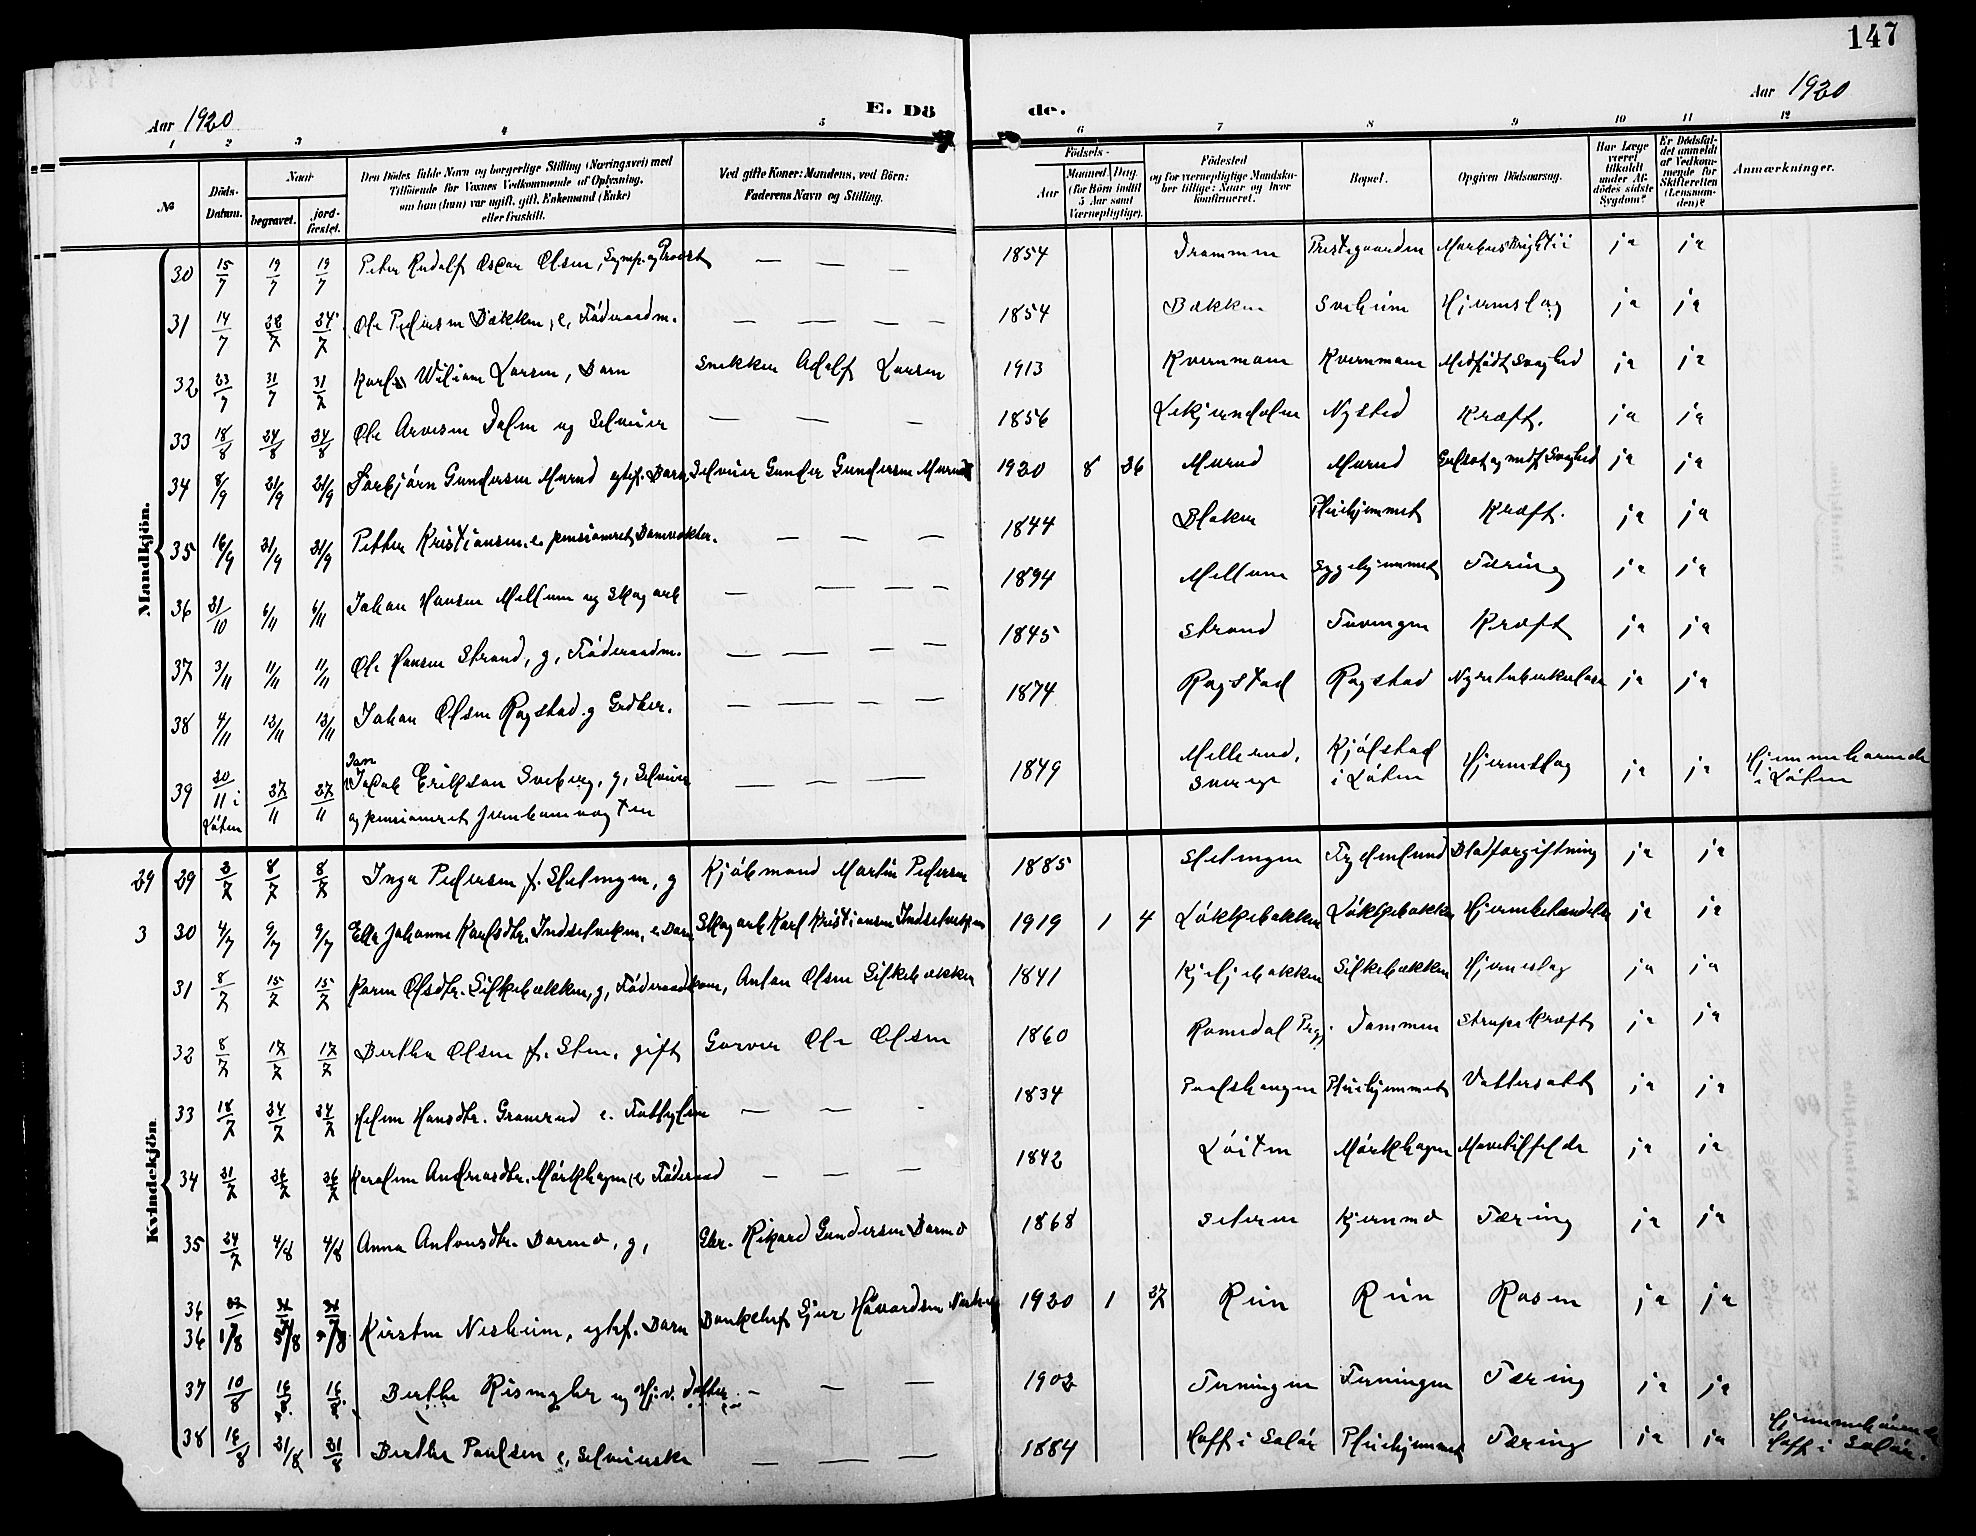 147
Aar 1920
E. Dö de.
Aar 1920
1 2 3 4 5 6 7 8 9 10 11 12
№
Döds-Datum.
Naar
begravet.
jord-fæstet.
Den Dödes fulde Navn og borgerlige Stilling (Næringsvei) med
Tilföiende for Voxnes Vedkommende af Oplysning,
om han (hun) var ugift, gift, Enkemand (Enke)
eller fraskilt.
Ved gifte Koner: Mandens, ved Börn:
Faderens Navn og Stilling.
Födsels-
Aar
Maaned Dag.
(for Börn indtil
5 Aar samt
Værnepligtige).
Födested
og for værnepligtige Mandska-
ber tillige: Naar og hvor
konfirmeret.
Bopæl.
Opgiven Dödsaarsag.
Har Læge
været
tilkaldt
under Af-
dödes sidste
Sygdom?
Er Dödsfal-
det anmeldt
af Vedkom-
mende for
Skifteretten
(Lensman-
den)?
Anmærkninger.
Mandkjön.
30 15/7 19/7 19/7 Peter Rudolf Oscar Olsen, Sognep. og Provst — — — 1854 Drammen Prestegaarden Morbus Brightii ja ja
31 14/7 22/7 24/7 Ole Pedersen Bækken, e, Föderaadm. — — — — 1854 Bækken Sveheim Hjerneslag ja ja
32 23/7 31/7 31/7 Karl Wiliam Larsen, Barn Snekker Adolf Larsen 1913 Kvernmoen Kvernmoen Medfödt Svaghed ja ja
33 18/8 24/8 24/8 Ole Arvesen Dalen ug Selveier — — — 1856 Nysted Kræft. ja ja
34 8/9 21/9 21/9 Torbjörn Gundersen Murud egtef. Barn Selveier Gunder Gundersen Murud 1920 8 26 Murud Murud Gulsot og medf. Svaghed ja ja
35 16/9 21/9 21/9 Petter Kristiansen. e pensioneret Banevokter. — — — 1844 Blaker Pleiehjemmet Kræft. ja ja
36 31/10 6/11 6/11 Johan Hansen Mellum ug Skogarb — — — — 1894 Mellum Sygehjemmet Tæring ja ja
37 3/11 11/11 11/11 Ole Hansen Strand, g, Föderaadm. — — — — 1845 Strand Kræft ja ja
38 4/11 13/11 13/11 Johan Olsen Rogstad. g Grdbr. — — — — 1874 Rogstad Rogstad Nyretuberkulose ja ja
39 20/11 i Löten 27/11 27/11 Jan Jakob Erikson Sveberg, g, Selveier — — — 1849 Mellerud, Sverige Kjölstad i Löten Hjerneslag ja ja Hjemmehörende i Löten
og pensioneret Jernbanevogten
Kvindekjön.
29 29 2/7 8/7 8/7 Inga Pedersen f. Stetingen, g Kjöbmand Martin Pedersen 1885 Stetingen Blodforgiftning ja ja
3 30 4/7 9/7 9/7 Ella Johanne Karlsdtr. Indsetveken, e. Barn Skogarb Karl Kristiansen Indsetveken 1919 1 4 Löklebakken Löklebakken Hjernebetændelse ja ja
31 8/7 15/7 15/7 Karen Olsdtr. Silkebækken, g, Föderaadkone, Anton Olsen Silkebækken 1841 Silkebækken Hjerneslag ja ja
32 8/7 17/7 17/7 Berthe Olsen f. Sten, gift Garver Ole Olsen 1860 Romedal Prgj. Dammen Strupekræft ja ja
33 18/7 24/7 24/7 Helene Hansdtr. Granerud e. Fattiglem — — - 1834 Paalshaugen Pleiehjemmet Vattersott ja ja
34 21/7 26/7 26/7 Karoline Andreasdtr. Mörkhagen, e Föderaad — — — 1842 Löiten Mörkhagen Mavetilfelde ja ja
35 24/7 4/8 4/8 Anna Antonsdtr. Barmo, g, Gbr. Rikard Gundersen Barmo 1868 Kjernmo Tæring ja ja
36
36 1/8 5/8 5/8 Kirsten Nesheim, egtef. Barn Bankchef Sjur Håvardsen Nesheim 1920 1 27 Rein Rein Rosen ja ja
37 10/8 16/8 16/8 Berthe Rismyhr ug Hj.v. Datter — — — 1902 Terningen Terningen Tæring ja ja
38 16/8 21/8 21/8 Berthe Paulsen e, Selveierske — — — 1884 Hoff i Solör Pleiehjemmet Tæring ja ja Hjemmehörende Hoff i Solör.